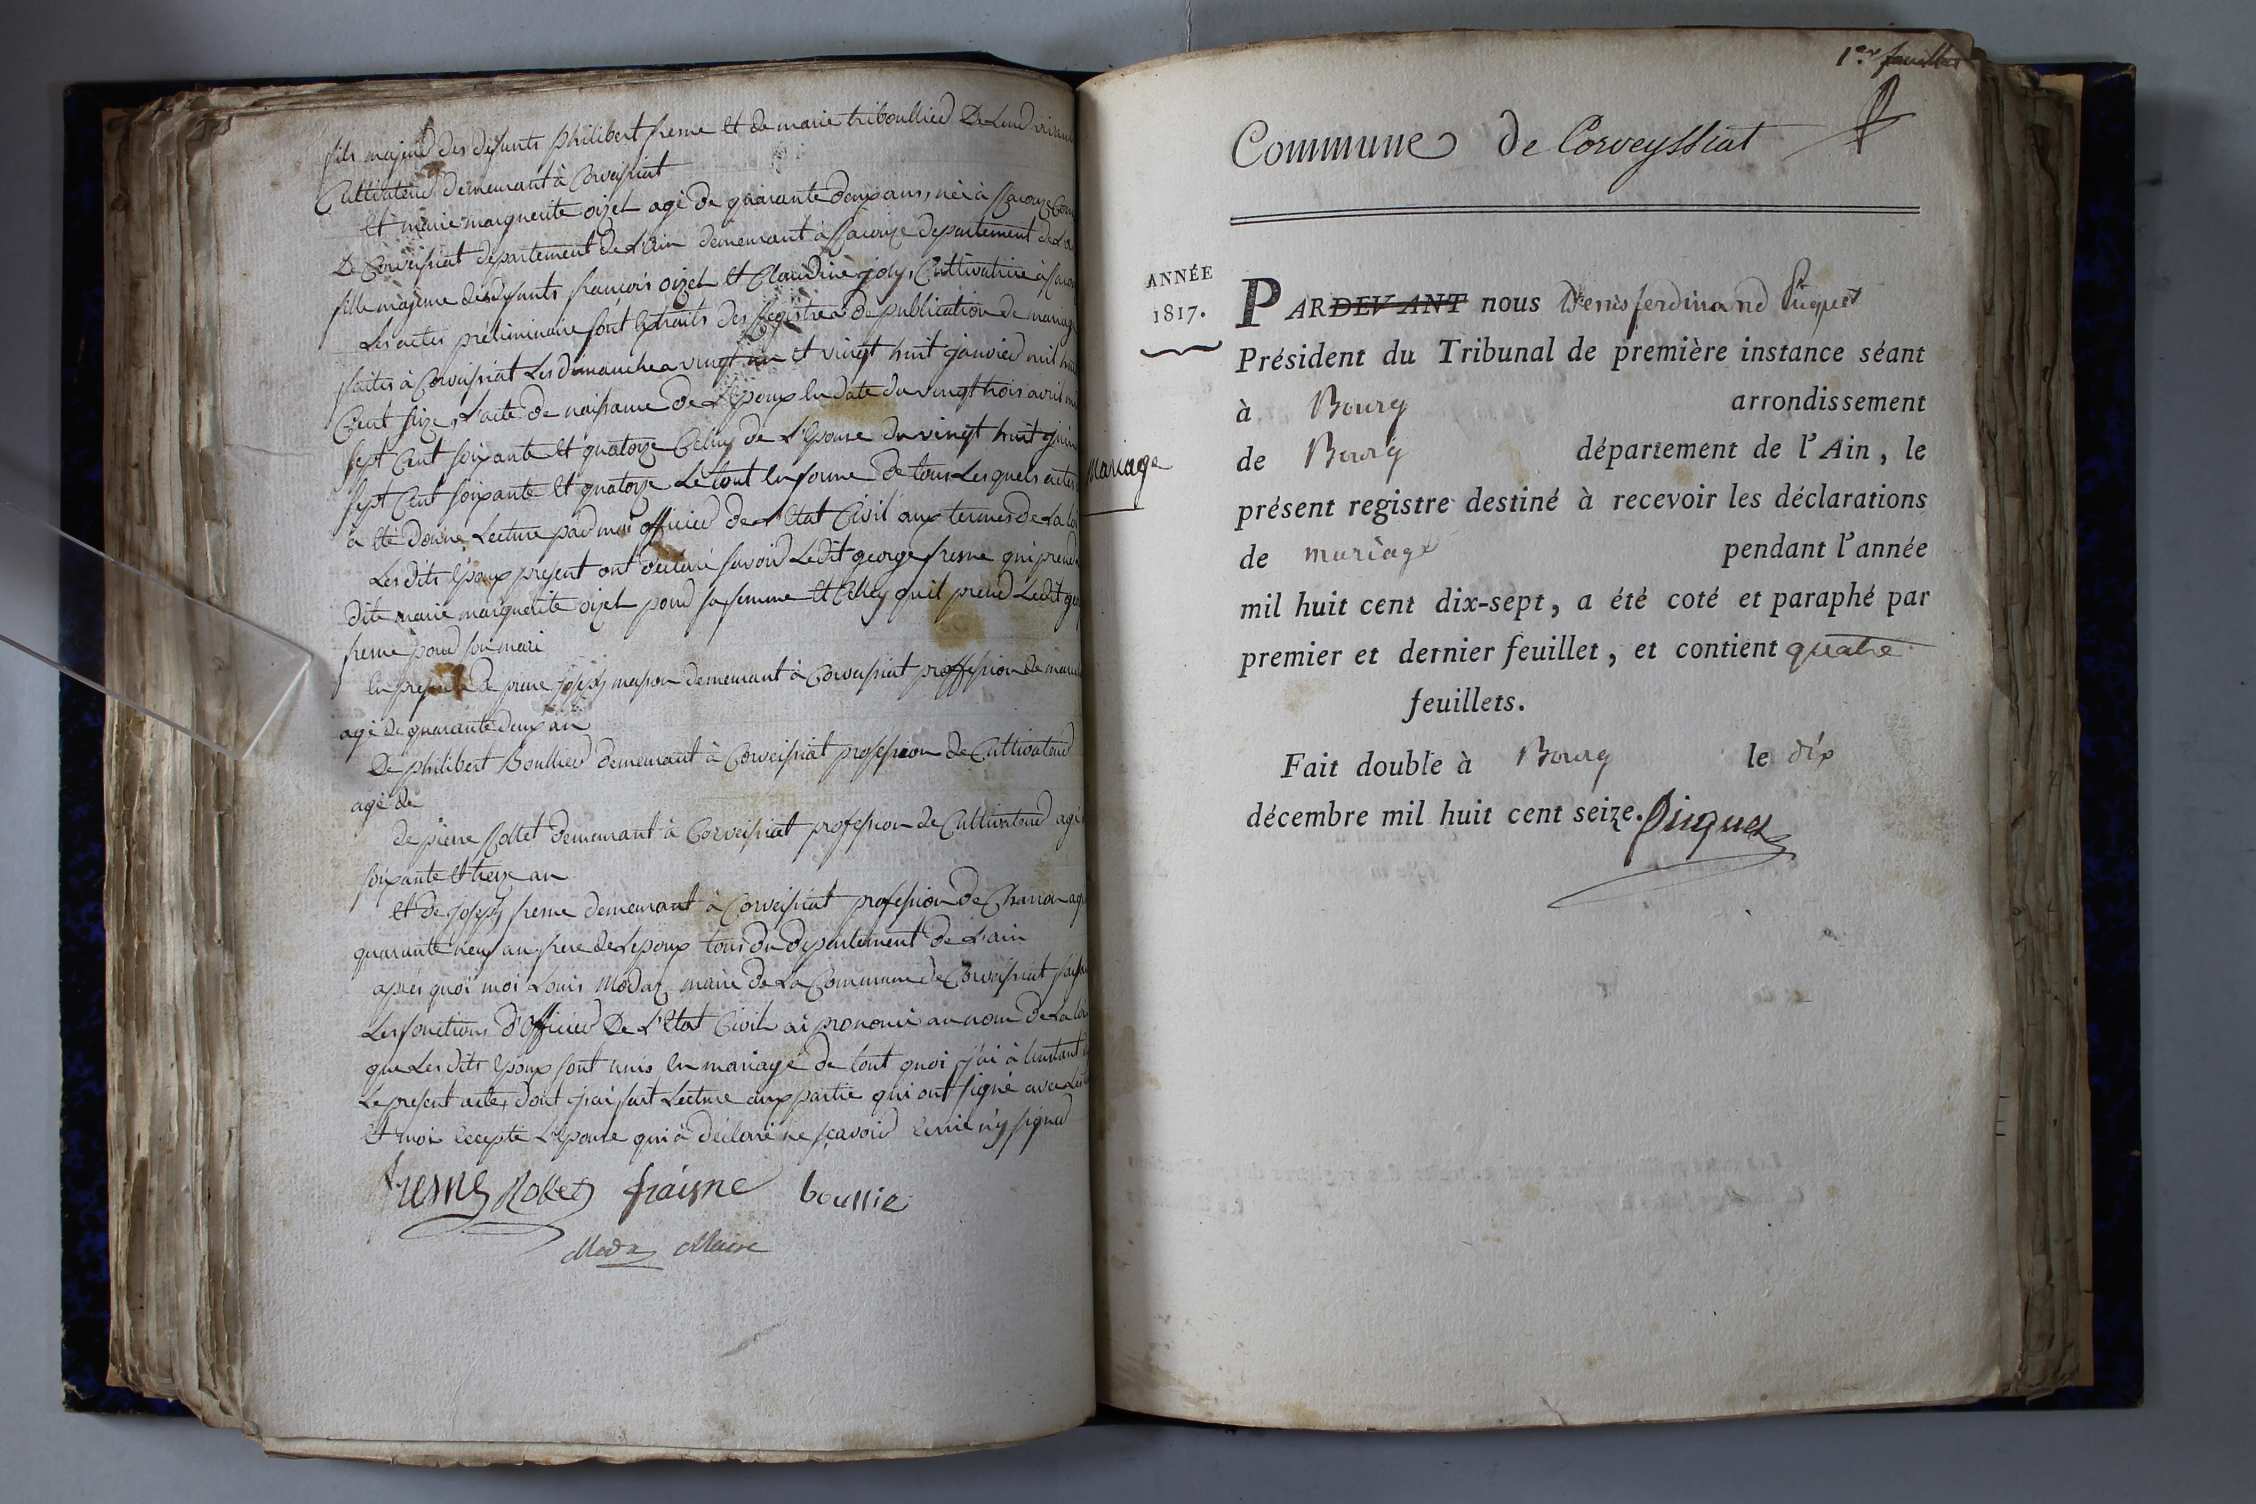 fils majeur des défunts philibert fresne et de marie triboullier De Leur vivant
Cultivateur demeurant à Corveissiat
et marie marguerite oizel agé de quarante deux ans, née à
De Corveissiat département de L'ain demeurant à département de L'a
fille majeure des défunts françois oizel et Claudine joly, Cultivatrice à
Les actes préliminaire sont Extraits des Registres de publication de mariage
faites à Corveissiat Les dimanches vingt un et vingt huit janvier mil huit
Cent seize, L'acte de naissance de L'Epoux En date du vingt trois avril mil
sept Cent soixante et quatorze Celuy de L'Epouse du vingt huit
sept Cent soixante et quatorze Le tout En forme De tous Lesquels actes
a été donné Lecture par moi officier de L'Etat Civil aux termes de La loi
Les dits Epoux present ont déclaré savoir Ledit george fresne qui prend
dite marie marguerite oizel pour sa femme et Elle quil prend Ledit
fresne pour son mari
En presence De pierre joseph demeurant à Corveissiat proffession de
agé de quarante deux an
De philibert Boullier demeurant à Corveissiat profession de Cultivateur
agé de
de pierre Rollet demeurant à Corveissiat profession de Cultivateur agé
soixante et treize an
et de joseph fresne demeurant à Corveissiat profession de Charron agé
quarante neuf an frere de Lepoux tous du département de L'ain
après quoi moi Louis Modas maire de La Commune de Corveissiat faisant
Les fonctions d'officier De L'Etat Civil ai prononcé au nom De La loi
que Les dits Epoux sont unis En mariage de tout quoi j'ai à linstant
Le present acte, dont j'ai fait Lecture aux partie qui ont signé avec
et moi Excepté L'Epouse qui a déclaré ne sçavoir Ecrire n'y signer
fresne Rollet fraisne boullie
Modas Maire
1.er feuillet
Commune de Corveyssiat
Mariage
ANNÉE
1817.
PARDEVANT nous Denis ferdinand Picquet
Président du Tribunal de première instance séant
à Bourg arrondissement
de Bourg département de l'Ain, le
présent registre destiné à recevoir les déclarations
de mariage pendant l'année
mil huit cent dix-sept, a été coté et paraphé par
premier et dernier feuillet, et contient quatre
feuillets.
Fait double à Bourg le dix
décembre mil huit cent seize. Picquet